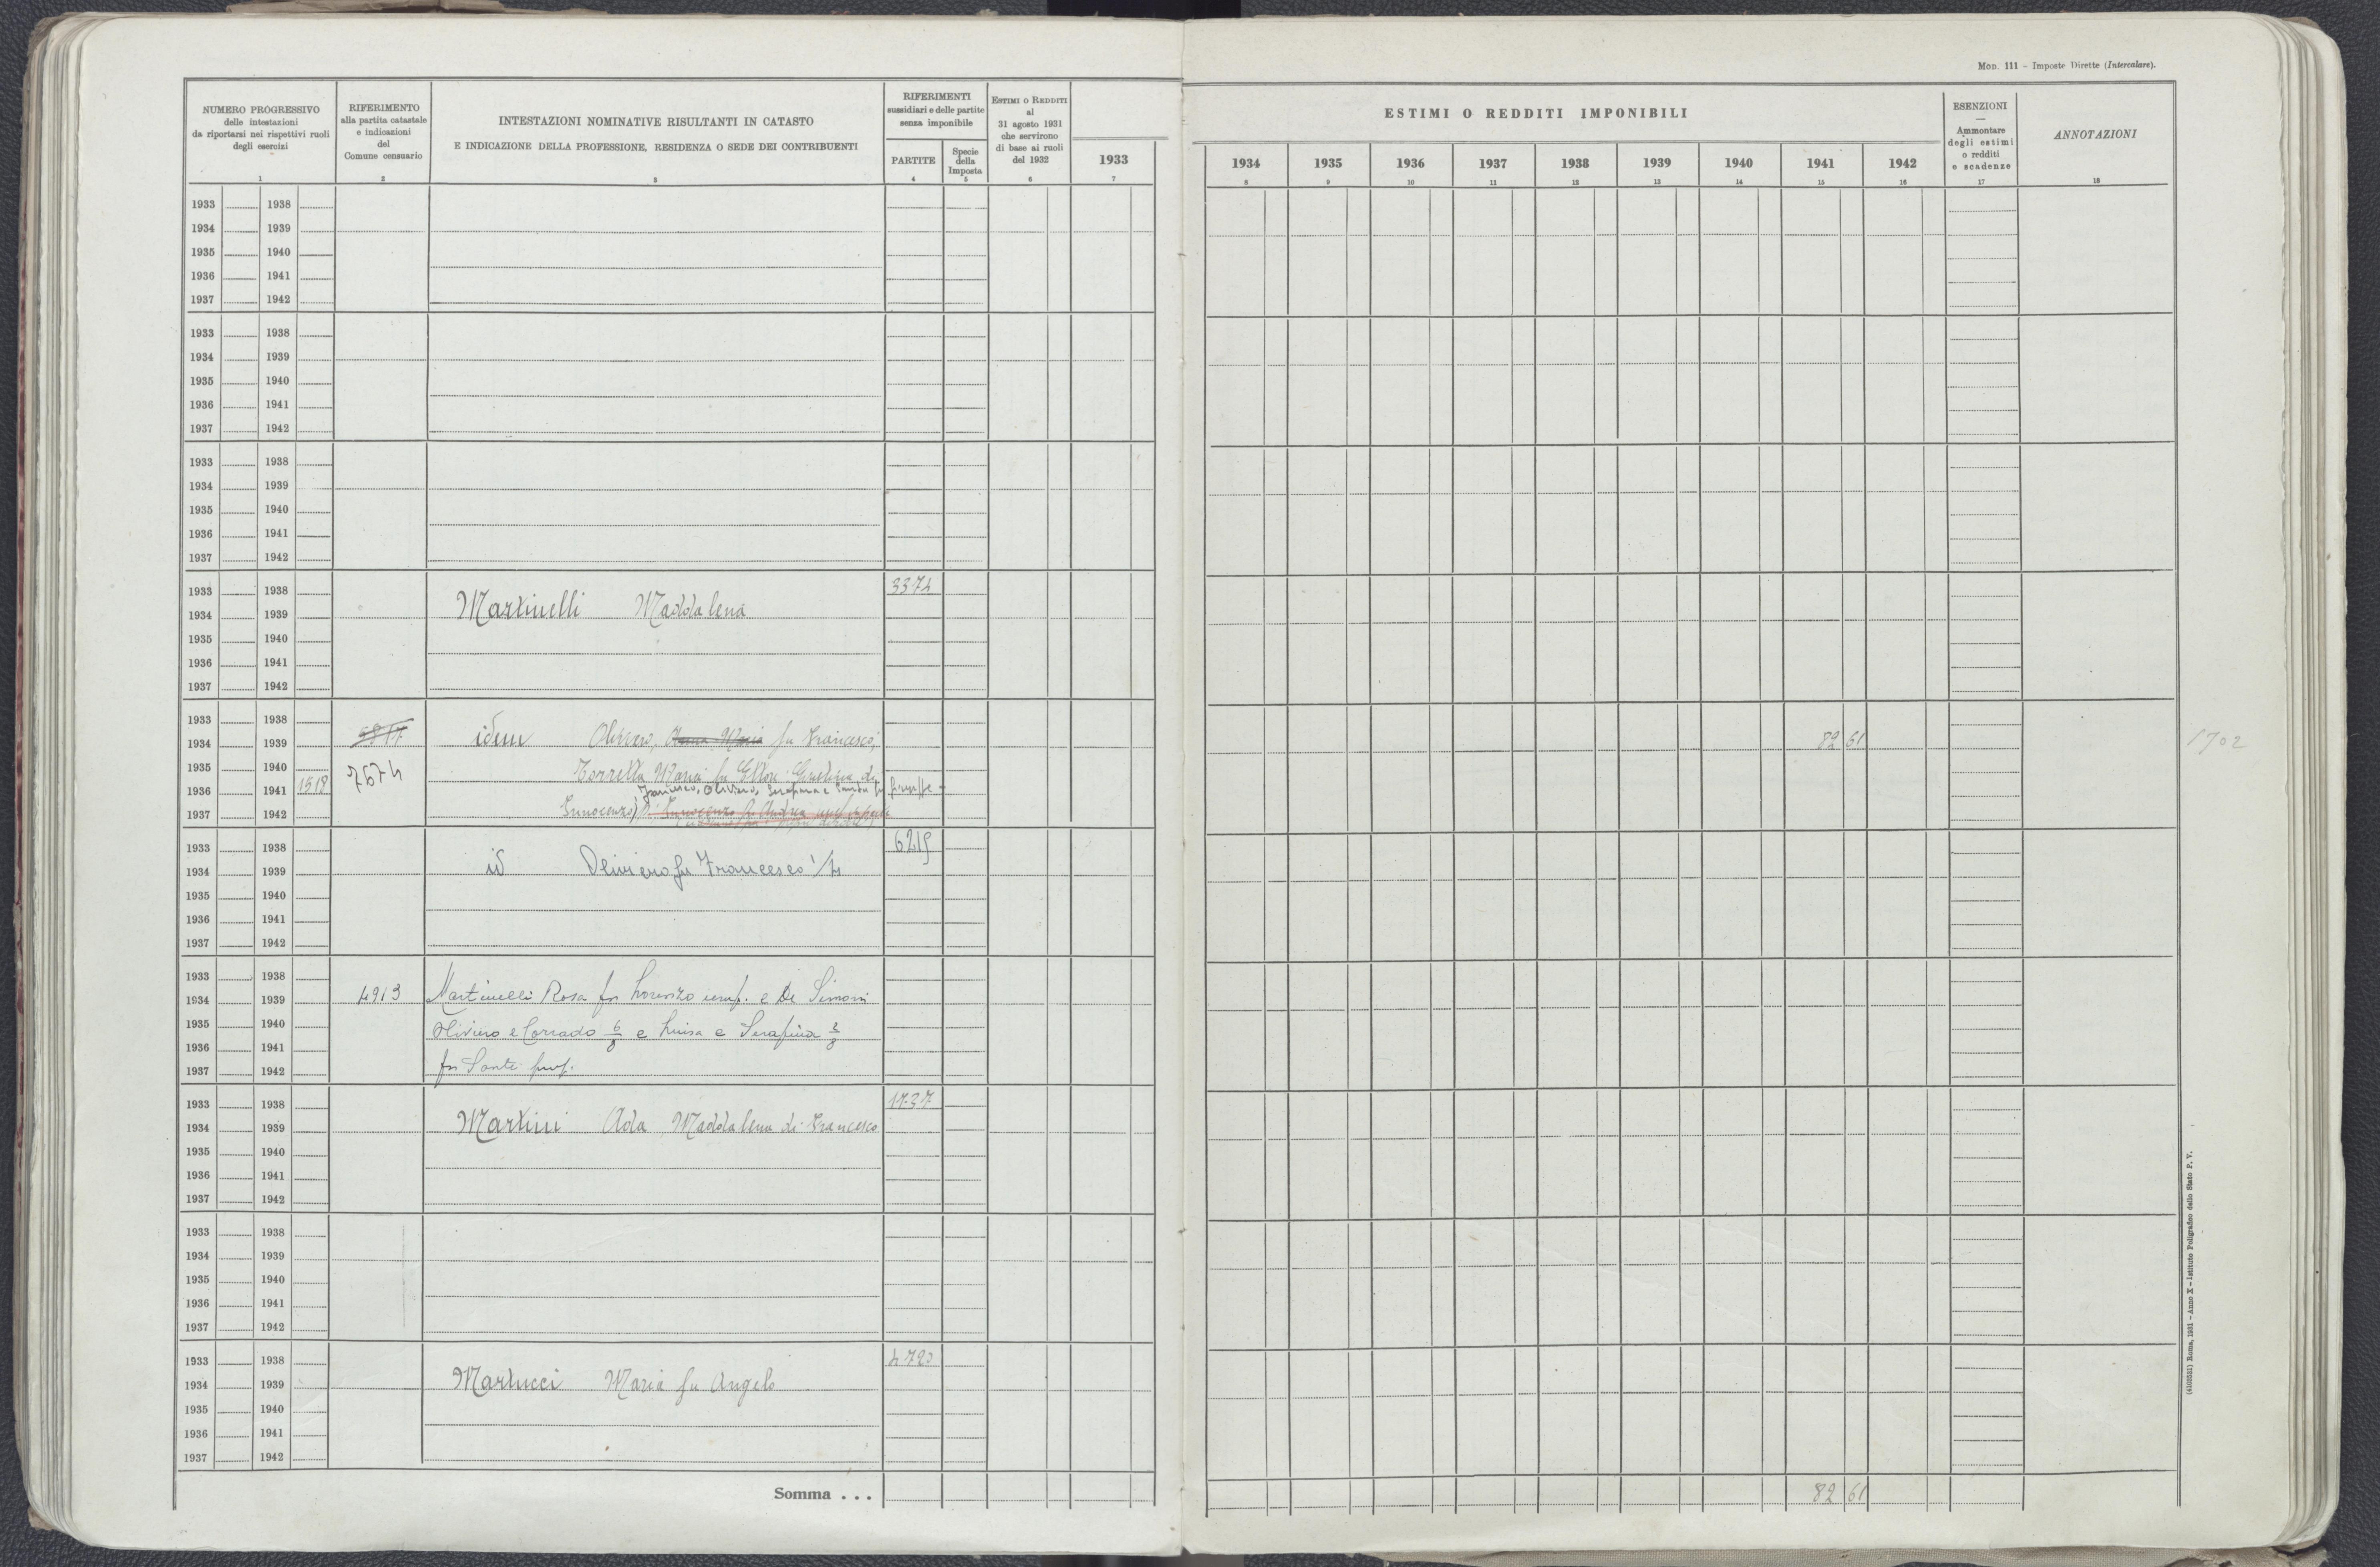 Mod. 111 - Imposte Dirette (Intercalare).
NUMERO PROGRESSIVO
delle intestazioni
da riportarsi nei rispettivi ruoli
degli esercizi
1
RIFERIMENTO
alla partita catastale
e indicazioni
del
Comune censuario
2
INTESTAZIONI NOMINATIVE RISULTANTI IN CATASTO
E INDICAZIONE DELLA PROFESSIONE, RESIDENZA O SEDE DEI CONTRIBUENTI
3
RIFERIMENTI
sussidiari e delle partite
senza imponibile
PARTITE
4
Specie
della
Imposta
5
ESTIMI O REDDITI
al
31 agosto 1931
che servirono
di base ai ruoli
del 1932
6
1933
7
ESTIMI O REDDITI IMPONIBILI
1934 1935 1936 1937 1938 1939 1940 1941 1942
8 9 10 11 12 13 14 15 16
ESENZIONI
—
Ammontare
degli estimi
o redditi
e scadenze
17
ANNOTAZIONI
18
1933 1938
1934 1939
1935 1940
1936 1941
1937 1942
1933 1938
1934 1939
1935 1940
1936 1941
1937 1942
1933 1938
1934 1939
1935 1940
1936 1941
1937 1942
1933 1938 3374
1934 1939 Martinelli Maddalena
1935 1940
1936 1941
1937 1942
1933 1938
1934 1939 idem Oliviero, Anna Maria fu Francesco; 82 61 1702
1935 1940 7674 Torretta Maria fu Ettore
1936 1941 1518 Francesco, Oliviero, Serafina e
1937 1942 Innocenzo
1933 1938 6215
1934 1939 id Oliviero fu Francesco 1/4
1935 1940
1936 1941
1937 1942
1933 1938
1934 1939 4913 Martinelli Rosa fu Lorenzo usuf. e De Simoni
1935 1940 Oliviero e Corrado 6/8 e Luisa e Serafina 2/8
1936 1941
1937 1942 fu Sante prop.
1933 1938 1737
1934 1939 Martini Ada Maddalena di Francesco
1935 1940
1936 1941
1937 1942
1933 1938
1934 1939
1935 1940
1936 1941
1937 1942
1933 1938 4720
1934 1939 Martucci Maria fu Angelo
1935 1940
1936 1941
1937 1942
Somma . . . 82 61
(4103531) Roma, 1931 - Anno X - Istituto Poligrafico dello Stato P. V.